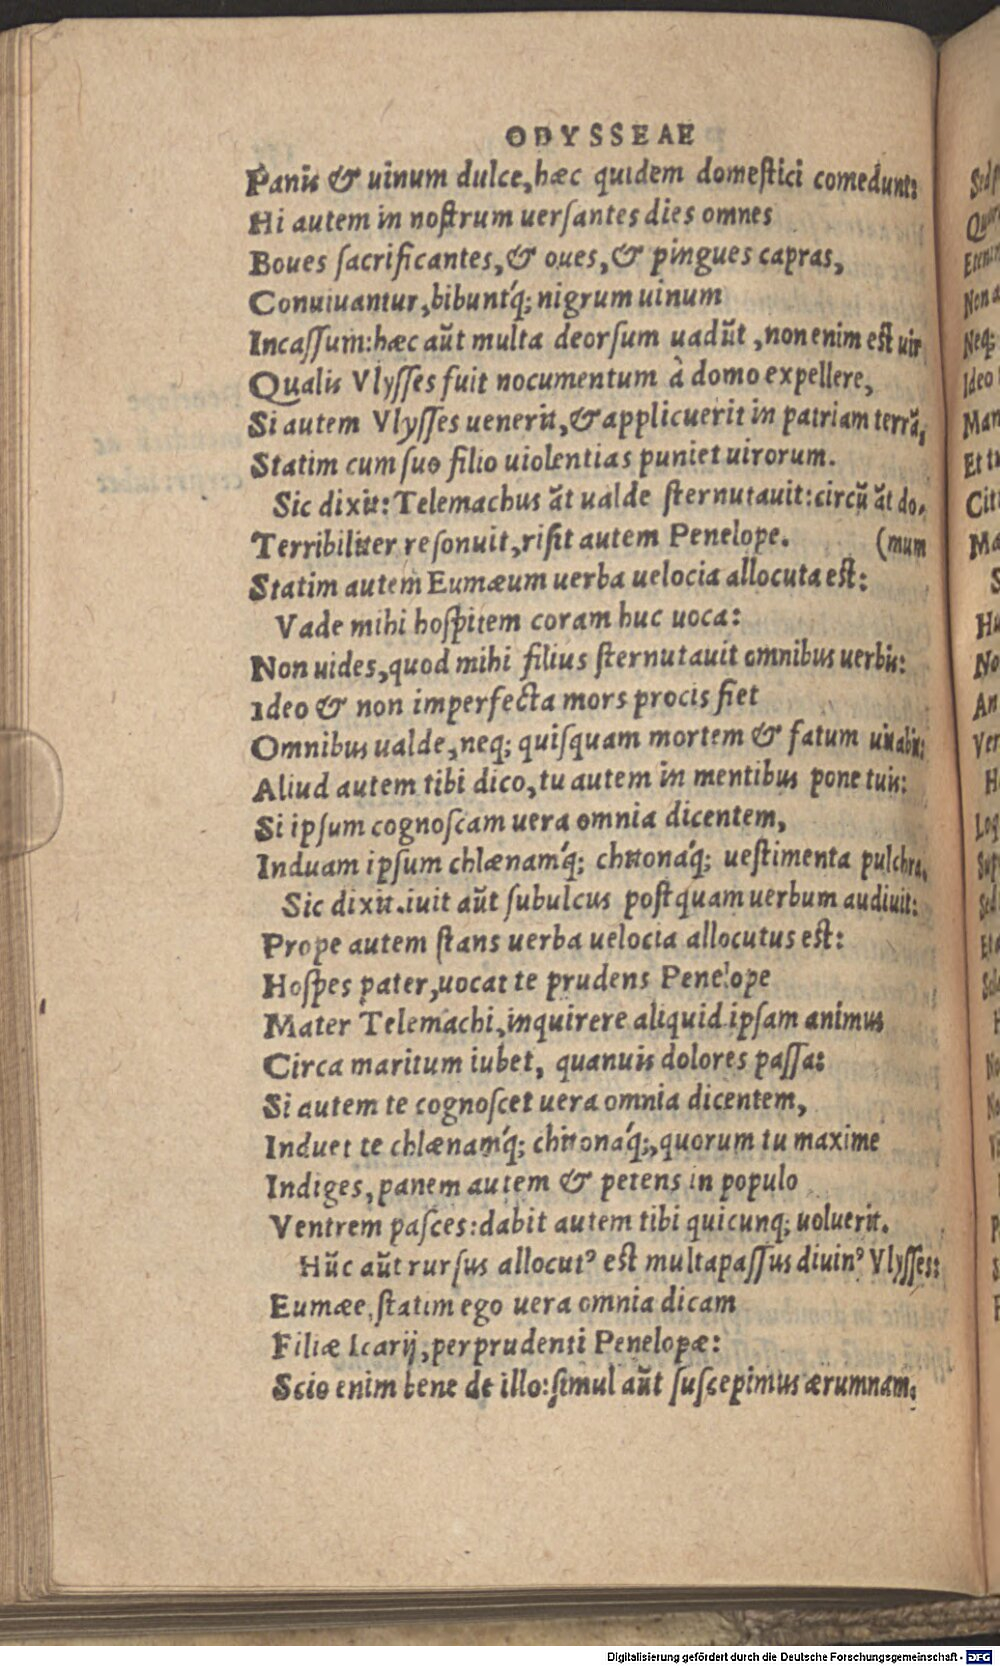 ODYSSEAE
Panis & uinum dulce, hæc quidem domeſtici comedunt:
Hi autem in noſtrum uerſantes dies omnes
Boues ſacrificantes, & oues, & pingues capras,
Conuiuantur, bibuntq́; nigrum uinum
Incaſſum: hæc aūt multa deorſum uadūt, non enim eſt uir
Qualis Vlyſſes fuit nocumentum à domo expellere,
Si autem Vlyſſes uenerit, & applicuerit in patriam terrā,
Statim cum ſuo filio uiolentias puniet uirorum.
Sic dixit: Telemachus āt ualde ſternutauit: circū āt do-
Terribiliter reſonuit, riſit autem Penelope. (mum
Statim autem Eumæum uerba uelocia allocuta eſt:
Vade mihi hoſpitem coram huc uoca:
Non uides, quod mihi filius ſternutauit omnibus uerbis:
Ideo & non imperfecta mors procis fiet
Omnibus ualde, neq; quiſquam mortem & fatum uitabit:
Aliud autem tibi dico, tu autem in mentibus pone tuis:
Si ipſum cognoſcam uera omnia dicentem,
Induam ipſum chlænamq́; chitonaq́; ueſtimenta pulchra.
Sic dixit. iuit aūt ſubulcus poſtquam uerbum audiuit:
Prope autem ſtans uerba uelocia allocutus eſt:
Hoſpes pater, uocat te prudens Penelope
Mater Telemachi, inquirere aliquid ipſam animus
Circa maritum iubet, quanuis dolores paſſa:
Si autem te cognoſcet uera omnia dicentem,
Induet te chlænamq́; chitonaq́;, quorum tu maxime
Indiges, panem autem & petens in populo
Ventrem paſces: dabit autem tibi quicunq; uoluerit.
Hūc aūt rurſus allocutꝰ eſt multapaſſus diuinꝰ Vlyſſes:
Eumæe, ſtatim ego uera omnia dicam
Filiæ Icarij, perprudenti Penelopæ:
Scio enim bene de illo: ſimul aūt ſuſcepimus ærumnam.
Digitalisierung gefördert durch die Deutsche Forschungsgemeinschaft - DFG